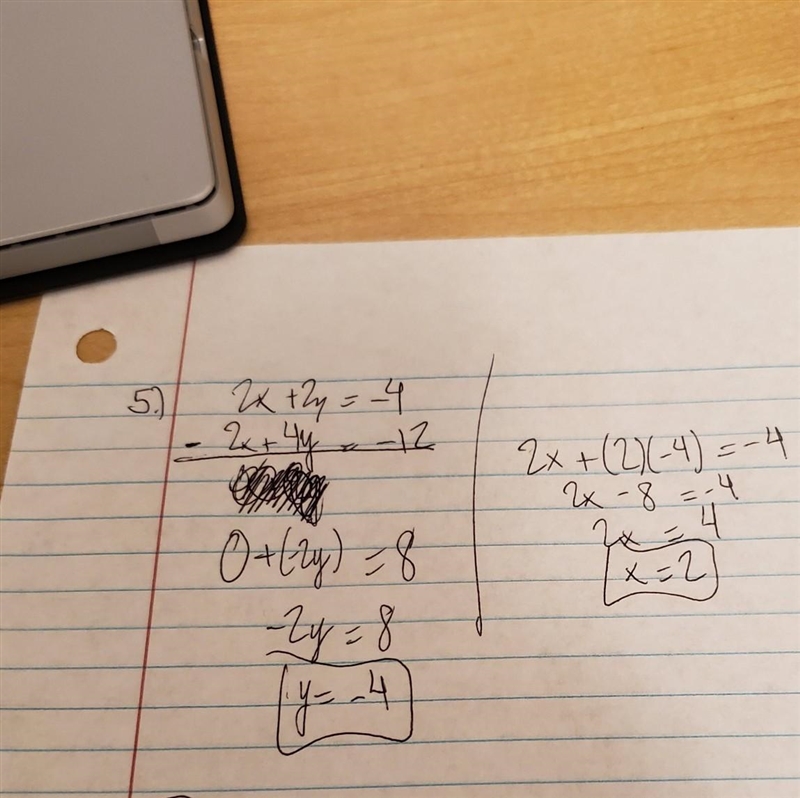 5.)
2x + 2y = -4
- 2x + 4y = -12
0 + (-2y) = 8
-2y = 8
y = -4
2x + (2)(-4) = -4
2x - 8 = -4
2x = 4
x = 2